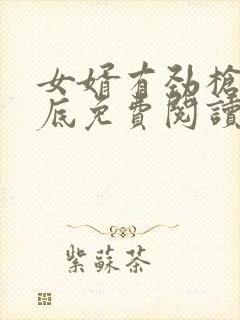 女婿有勁槍
底免費閱讀
紫蘇茶